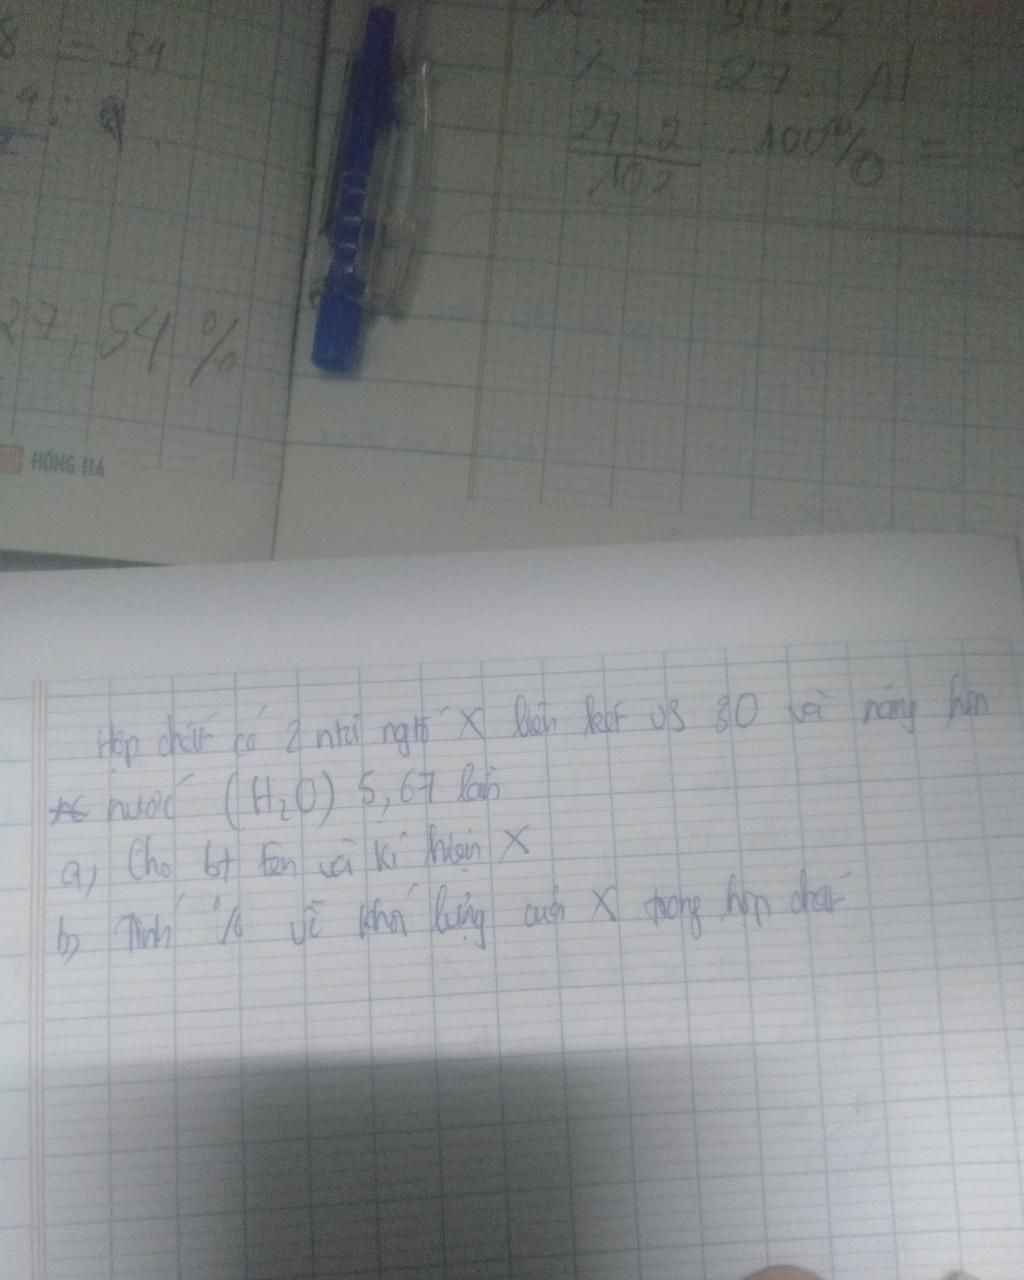 8 = 54
27,54%
HỒNG HÀ
X = 27. Al
27.2
102
.100% =
Hợp chất có 2 ntử ngtố X liên kết vs 3O và nặng hơn
nước (H₂O) 5,67 lần
a, Cho bt tên và kí hiệu X
b, Tính % về khối lượng của X trong hợp chất